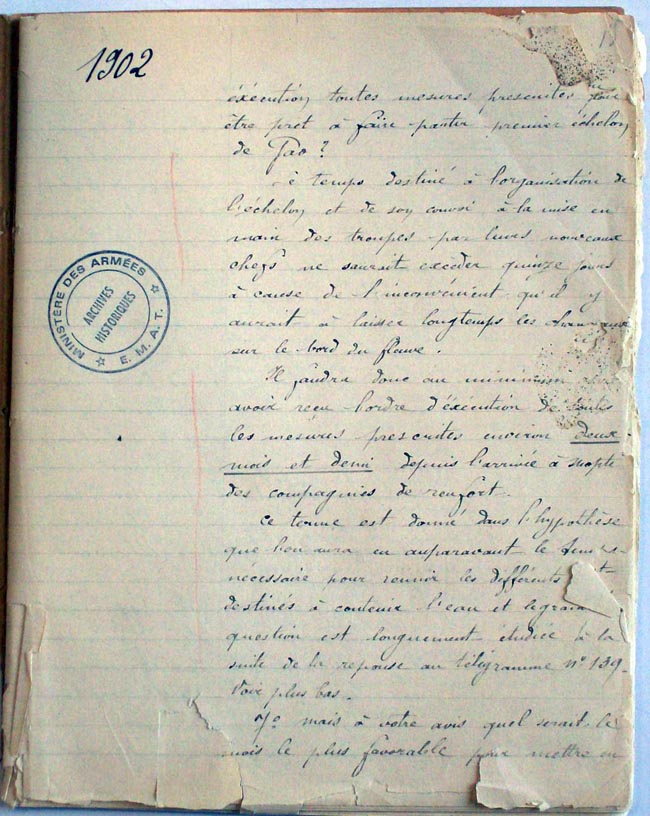 1902
éxécution toutes mesures prescrites pour
être prêt à faire partir premier échelon
de Gao ?
Le temps destiné à l'organisation de
l'échelon et de son convoi à la mise en
main des troupes par leurs nouveaux
chefs ne saurait excéder quinze jours
à cause de l'inconvénient qu'il y
aurait à laisser longtemps les chameaux
sur le bord du fleuve.
Il faudra donc au minimum
avoir reçu l'ordre d'éxécution de toutes
les mesures prescrites environ deux
mois et demi depuis l'arrivée à
des compagnies de renfort.
Ce terme est donné dans l'hypothèse
que l'on aura eu auparavant le temps
nécessaire pour réunir les différents
destinés à contenir l'eau et le grain
question est longuement étudiée à la
suite de la réponse au télégramme n° 139.
Voir plus bas.
7° mais à votre avis quel serait le
mois le plus favorable pour mettre en
MINISTÈRE DES ARMÉES
ARCHIVES
HISTORIQUES
E. M. A. T.